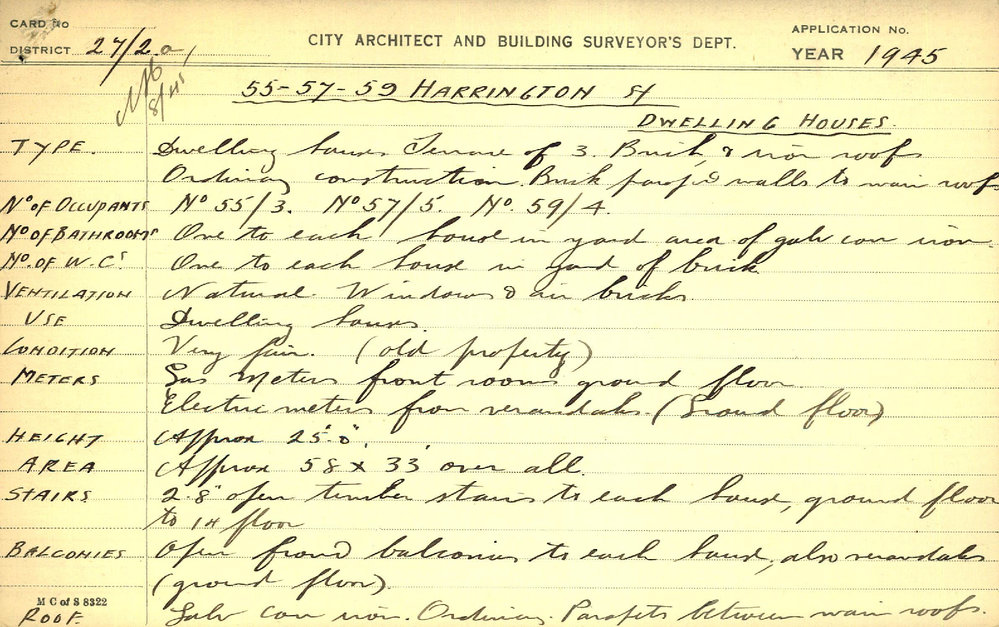 CARD No
DISTRICT 27/2a
8/45
CITY ARCHITECT AND BUILDING SURVEYOR'S DEPT.
APPLICATION No.
YEAR 1945
55-57-59 HARRINGTON St
DWELLING HOUSES.
TYPE. Dwelling houses Terrace of 3. Brick & iron roofs
Ordinary construction. Brick parapet walls to main roofs
No of OCCUPANTS No 55/3. No 57/5. No. 59/4.
No OF BATHROOMS One to each house in yard area of galv corr iron.
No. OF W.Cs One to each house in yard of brick
VENTILATION Natural. Windows & air bricks.
USE Dwelling houses.
CONDITION Very fair. (old property)
METERS Gas meters front rooms ground floor.
Electric meters front verandahs. (Ground floor)
HEIGHT Approx 25'-0".
AREA Approx 58 x 33' over all.
STAIRS 2'-8" open timber stairs to each house, ground floor
to 1st floor
BALCONIES Open front balconies to each house, also verandahs
(ground floor).
M C of S 8322
ROOF. Galv corr iron. Ordinary. Parapets between main roofs.